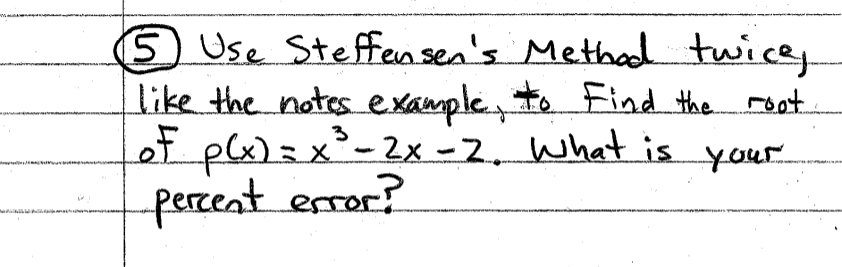 5 Use Steffensen's Method twice,
like the notes example, to find the root
of p(x) = x³ - 2x - 2. What is your
percent error?